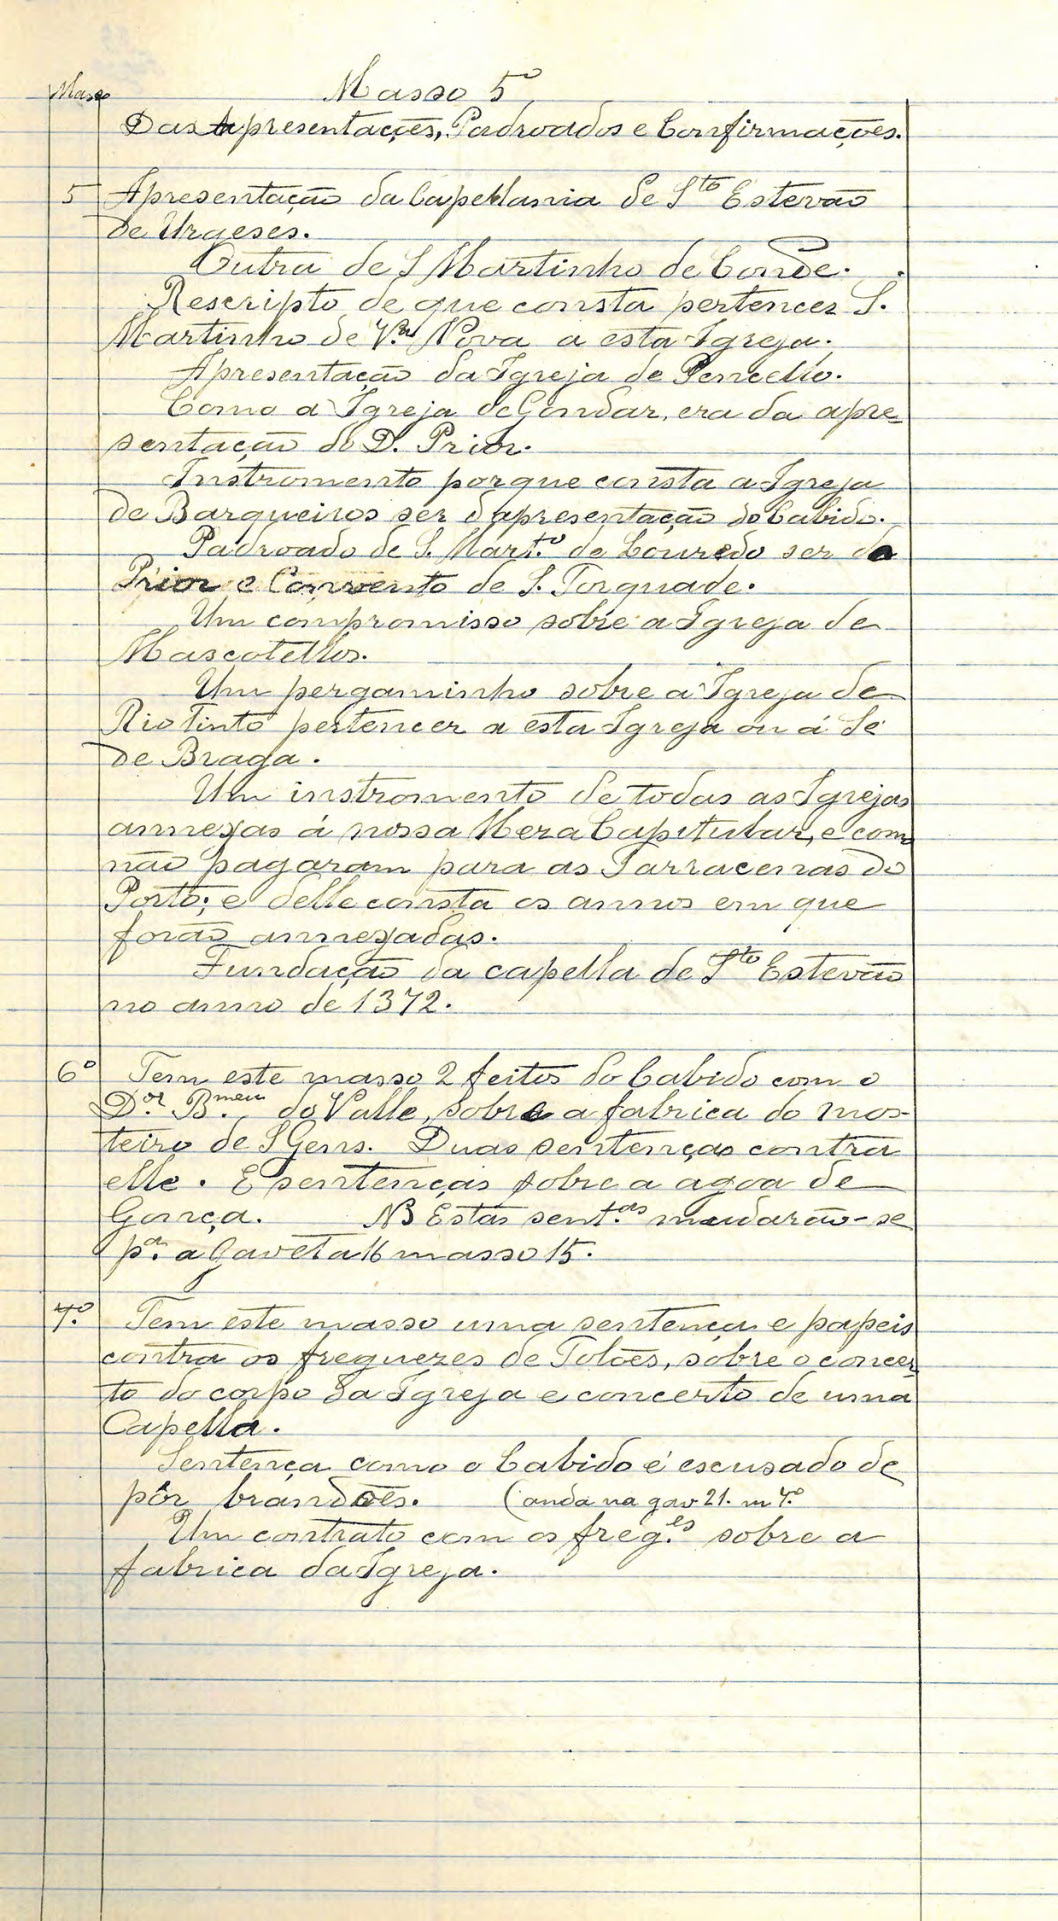 Masso
Masso 5º
Das Apresentações, Padroados e Confirmações.
5 Apresentação da Capellania de Sto Estevão
de Urgeses.
Outra de S Martinho de Conde.
Rescripto de que consta pertencer S.
Martinho de Vª Nova a esta Igreja.
Apresentação da Igreja de Pencello.
Como a Igreja de Gondar, era da apre-
sentação do D. Prior.
Instromento porque consta a Igreja
de Barqueiros ser d'apresentação do Cabido.
Padroado de S. Mart.º de Louredo ser do
Prior e Convento de S. Torquade.
Um compromisso sobre a Igreja de
Mascotellos.
Um pergaminho sobre a Igreja de
Rio Tinto pertencer a esta Igreja ou á Sé
de Braga.
Um instromento de todas as Igrejas
annexas á nossa Meza Capitular, e com
não pagaram para as Tarracenas do
Porto; e delle consta os annos em que
forão annexadas.
Fundação da capella de Sto Estevão
no anno de 1372.
6º Tem este masso 2 feitos do Cabido com o
D.or B.meu do Valle, sobre a fabrica do mos-
teiro de S Gens. Duas sentenças contra
elle. E sentenças sobre a agoa de
Gonça. NB Estas sent.as mudarão-se
pª. a Gaveta 16 masso 15.
7.º Tem este masso uma sentença e papeis
contra os freguezes de Tolões, sobre o concer
to do corpo da Igreja e concerto de uma
Capella.
Sentença como o Cabido é escusado de
pôr brandões. (anda na gav 21. m 7.º
Um contrato com os freg.es sobre a
fabrica da Igreja.